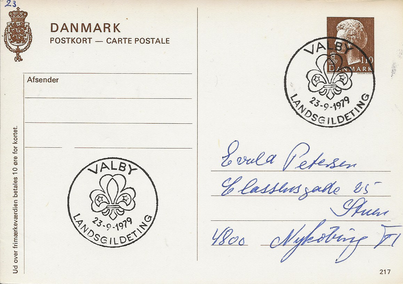 23
DANMARK
POSTKORT — CARTE POSTALE
Afsender
DANMARK
110
VALBY
23-9-1979
LANDSGILDETING
VALBY
23-9-1979
LANDSGILDETING
Petersen
25
4800 Nykøbing
Ud over frimærkeværdien betales 10 øre for kortet.
217